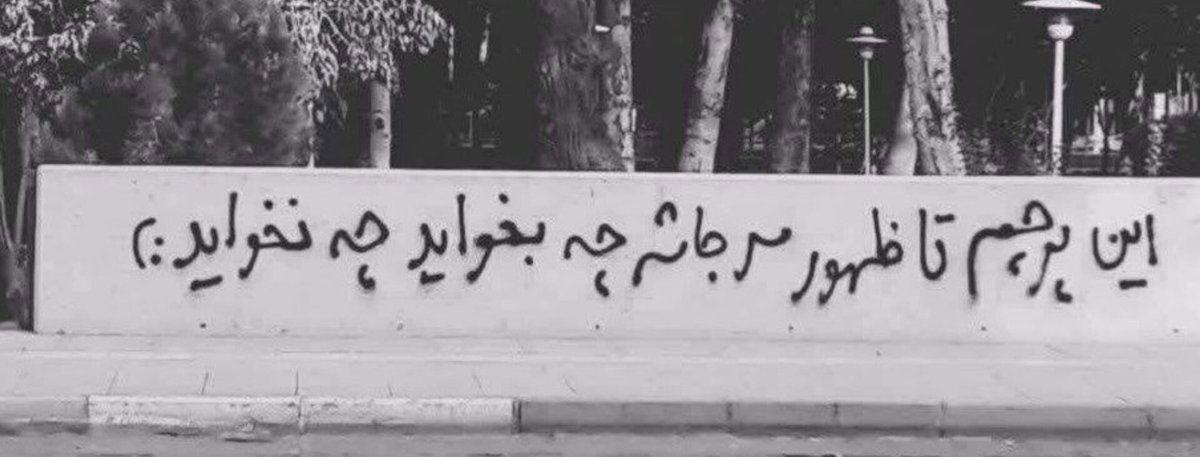 این پرچم تا ظهور سرجاشه چه بخواید چه نخواید :)